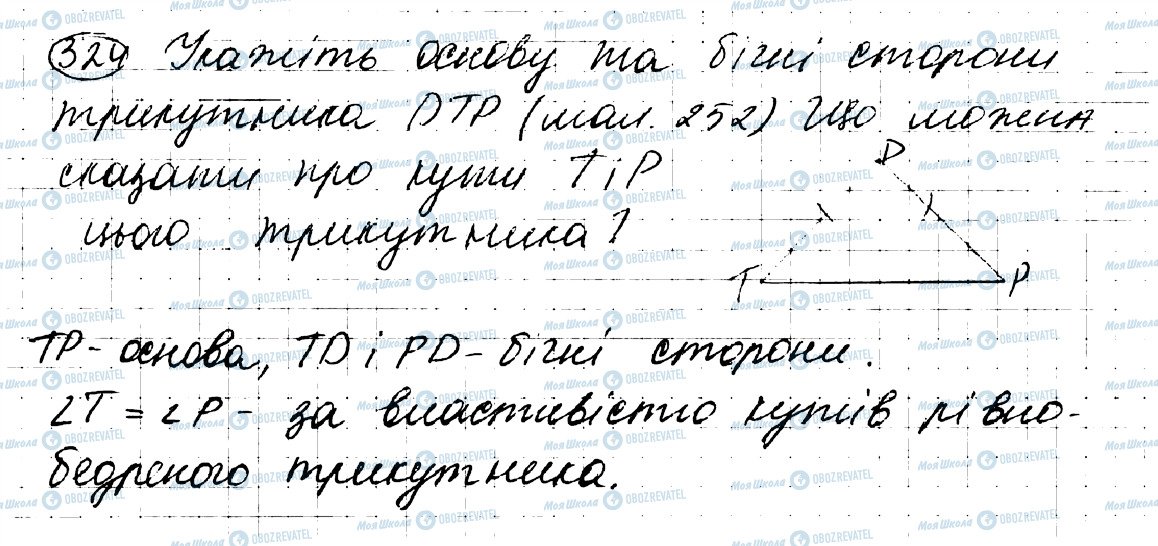 329 Укажіть основу та бічні сторони
трикутника DTP (мал. 252) Що можна
сказати про кути T і P
цього трикутника?
D
T
P
TP - основа, TD і PD - бічні сторони.
∠T = ∠P - за властивістю кутів рівно-
бедреного трикутника.